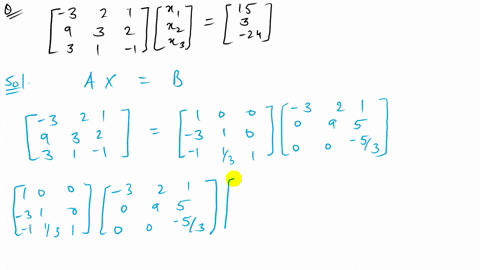 Q [-3 2 1; 9 3 2; 3 1 -1] [x1; x2; x3] = [15; 3; -24]
Sol. A X = B
[-3 2 1; 9 3 2; 3 1 -1] = [1 0 0; -3 1 0; -1 1/3 1] [-3 2 1; 0 9 5; 0 0 -5/3]
[1 0 0; -3 1 0; -1 1/3 1] [-3 2 1; 0 9 5; 0 0 -5/3] [